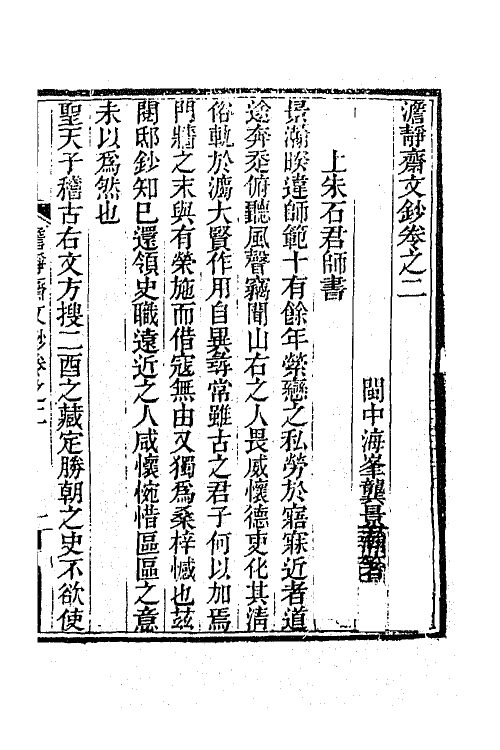 澹靜齋文鈔卷之二
閩中海峯龔景瀚著
上朱石君師書
景瀚睽違師範十有餘年縈戀之私勞於寤寐近者道
途奔忝俯聽風聲竊聞山右之人畏威懷德吏化其清
俗軌於濿大賢作用自異尋常雖古之君子何以加焉
門牆之末與有榮施而借寇無由又獨為桑梓憾也茲
閱邸鈔知已還領史職遠近之人咸懷惋惜區區之意
未以為然也
聖天子稽古右文方搜二酉之藏定勝朝之史不欲使
澹靜齋文鈔卷之二 一